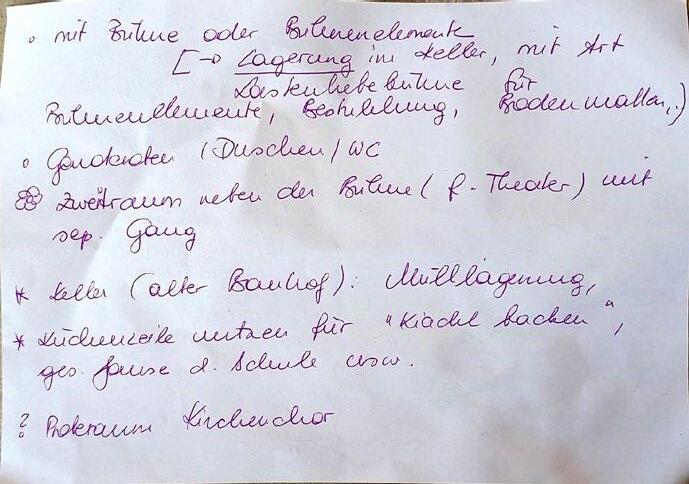 ◦ mit Bühne oder Bühnenelemente
[→ Lagerung im Keller, mit Art
Lastenhebebühne für
Bühnenelemente, Bestuhlung, Bodenmatten,.)
◦ Garderoben (Duschen/WC
Zweitraum neben der Bühne (f. Theater) mit
sep. Gang
* Keller (alter Bauhof): Mülllagerung,
* Küchenzeile nutzen für "Kiachl backen",
ges. Jause d. Schule usw.
? Proberaum Kirchenchor